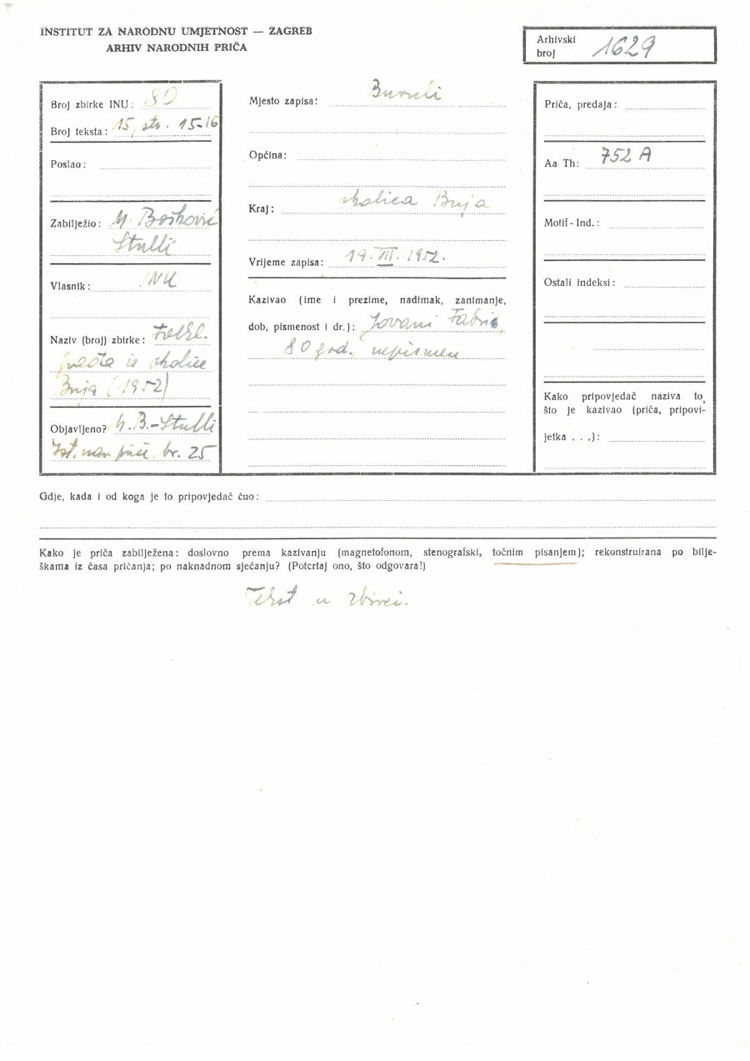 INSTITUT ZA NARODNU UMJETNOST — ZAGREB
ARHIV NARODNIH PRIČA
Arhivski
broj 1629
Broj zbirke INU: 80
Broj teksta: 15, str. 15-16
Poslao:
Zabilježio: M. Bošković
Stulli
Vlasnik: INU
Naziv (broj) zbirke: Folkl.
građa iz okolice
Buja (1952)
Objavljeno? M. B.-Stulli
Ist. nar. priče br. 25
Mjesto zapisa:
Općina:
Kraj: okolica Buja
Vrijeme zapisa: 19. VII. 1952.
Kazivao (ime i prezime, nadimak, zanimanje,
dob, pismenost i dr.): Jovani
80 god., nepismen
Priča, predaja:
Aa Th: 752 A
Motif-Ind.:
Ostali indeksi:
Kako pripovjedač naziva to,
što je kazivao (priča, pripovi-
jetka . . .):
Gdje, kada i od koga je to pripovjedač čuo:
Kako je priča zabilježena: doslovno prema kazivanju (magnetofonom, stenografski, točnim pisanjem); rekonstruirana po bilje-
škama iz časa pričanja; po naknadnom sjećanju? (Potcrtaj ono, što odgovara!)
Tekst u zbirci.